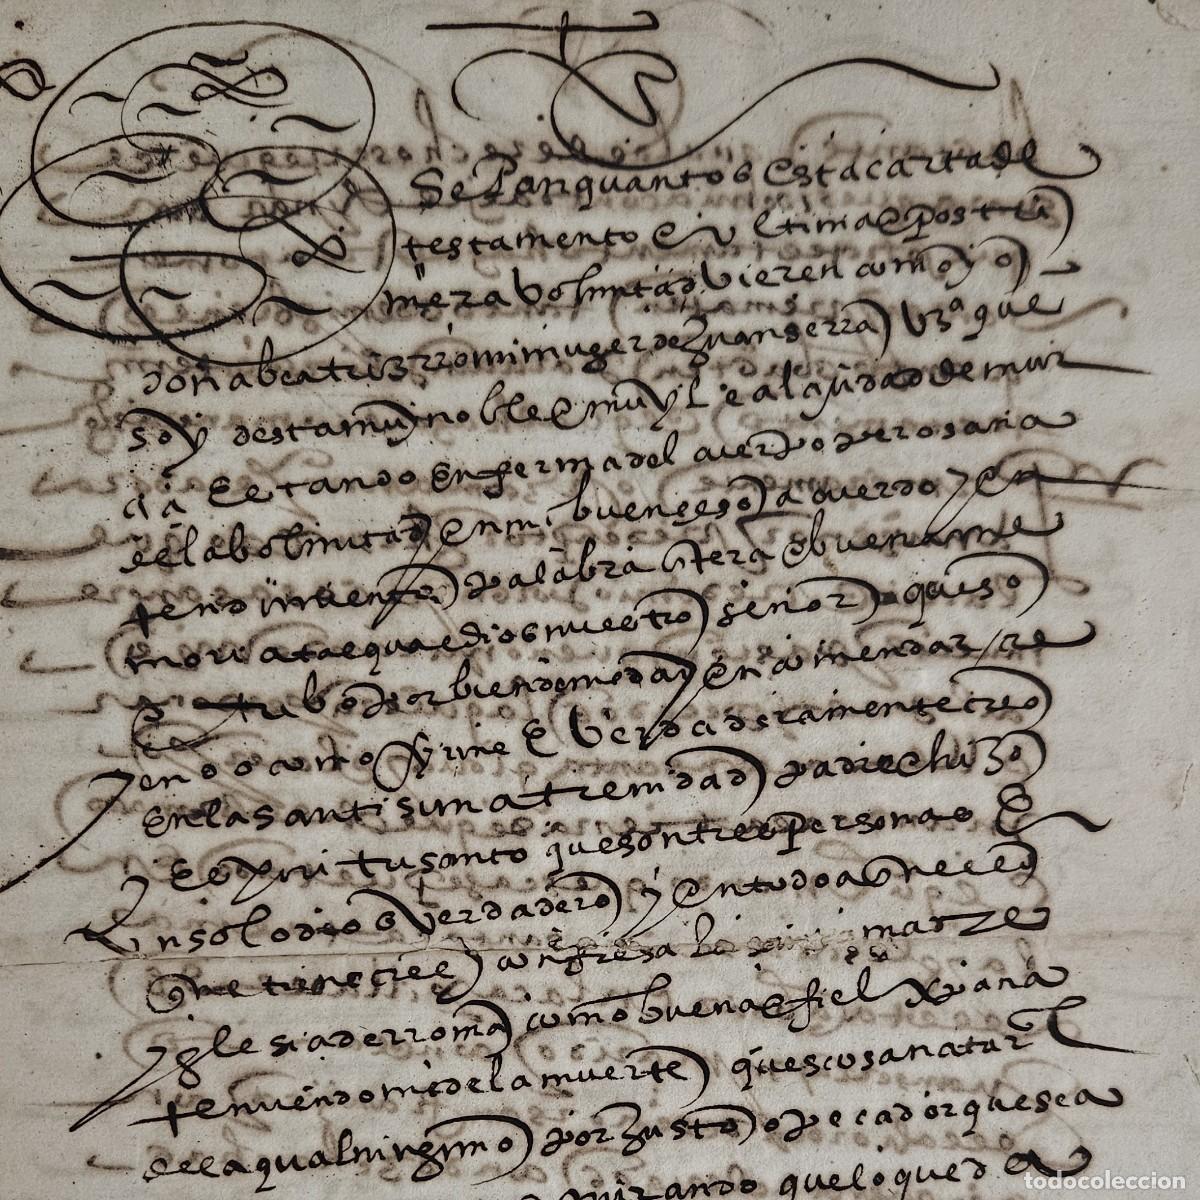 Sepan quantos esta carta de
testamento e ultima e postri
mera voluntad vieren como yo
doña beatriz rromi muger de Juan serra vzª que
soy desta muy noble e muy leal ciudad de mur
cia estando enferma del cuerpo e sana
de la boluntad y en mi buen seso acuerdo y en
tendimiento palabra entera e buena me
moria tal qual dios nuestro señor quiso
e tubo por bien de me dar y encomendar cre
yendo como firme e verdaderamente creo
en la santisima trenidad padre e hizo
y espiritu santo que son tres personas e
un solo dios verdadero y en todo aquello
que tiene cree y confiesa la madre
yglesia de rroma como buena e fiel xpiana
temiendome de la muerte ques cosa natural
de la qual ningino por justo o pecador que sea
mirando que lo que da
todocoleccion